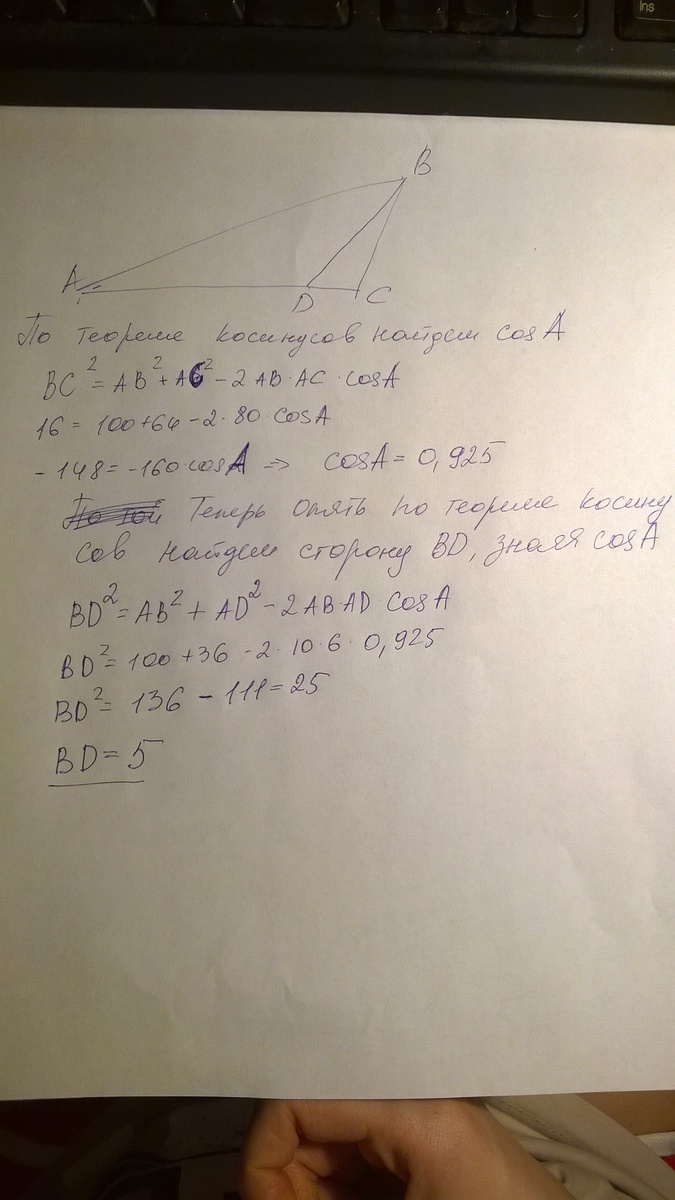 Ins
B
A
D C
По теореме косинусов найдем cos A
BC² = AB² + AC² - 2 AB · AC · cosA
16 = 100+64 - 2 · 80 · cosA
- 148 = -160·cosA => cosA = 0,925
Теперь опять по теореме косину
сов найдем сторону BD, зная cosA
BD² = AB² + AD² - 2 AB AD cosA
BD² = 100 + 36 - 2 · 10 · 6 · 0,925
BD² = 136 - 111 = 25
BD = 5